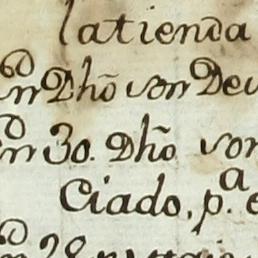 latienda
en Dho son Deu
en 30. Dho son
Ciado, p.a e
en 28